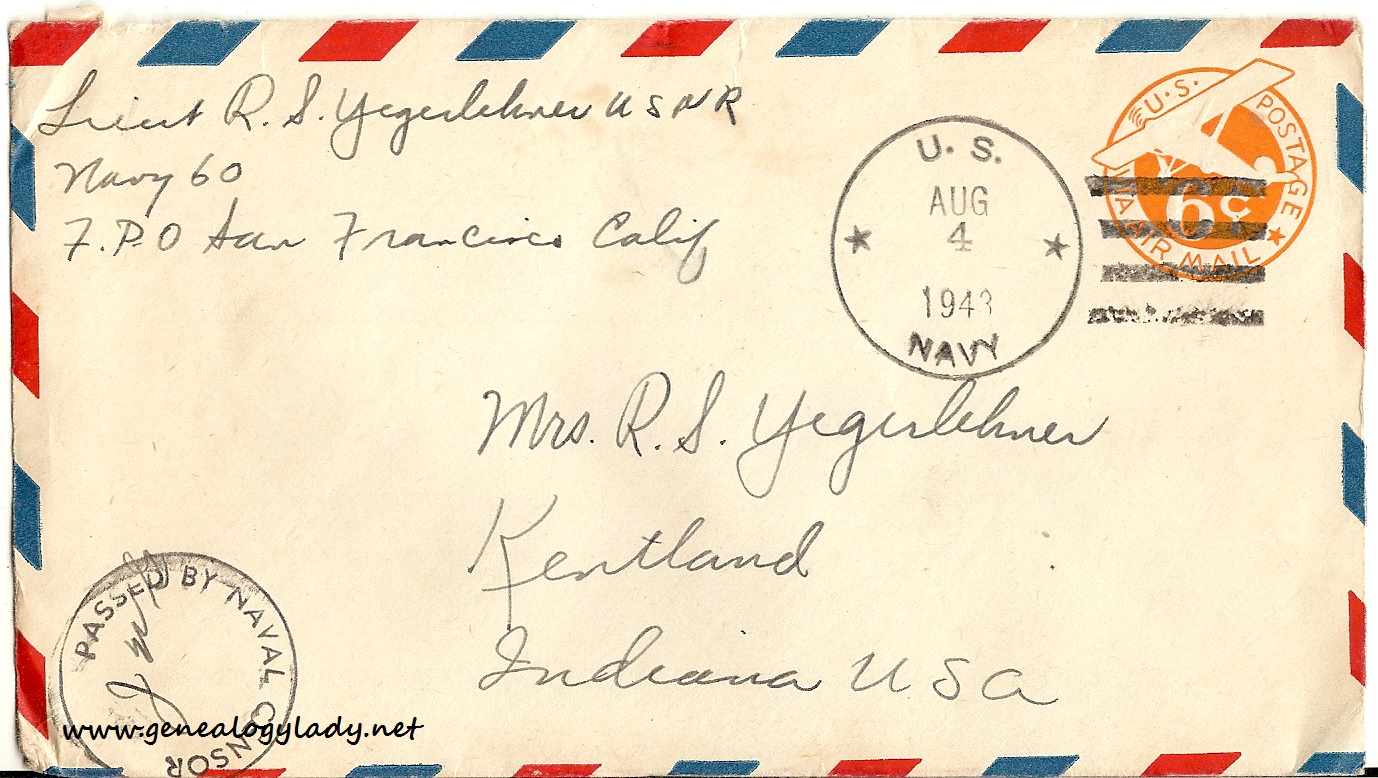 Lieut R. S. Yegerlehner U S N R
Navy 60
F.P.O San Francisco Calif
U. S.
AUG
4
1943
NAVY
U.S. POSTAGE
6c
VIA AIR MAIL
Mrs. R. S. Yegerlehner
Kentland
Indiana U.S A
PASSED BY NAVAL CENSOR
www.genealogylady.net